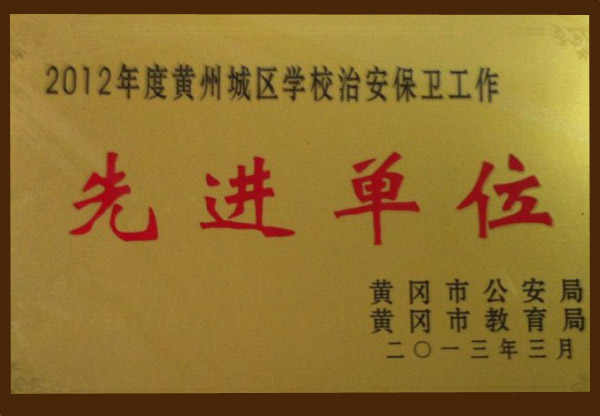 2012年度黄州城区学校治安保卫工作
先进单位
黄冈市公安局
黄冈市教育局
二〇一三年三月